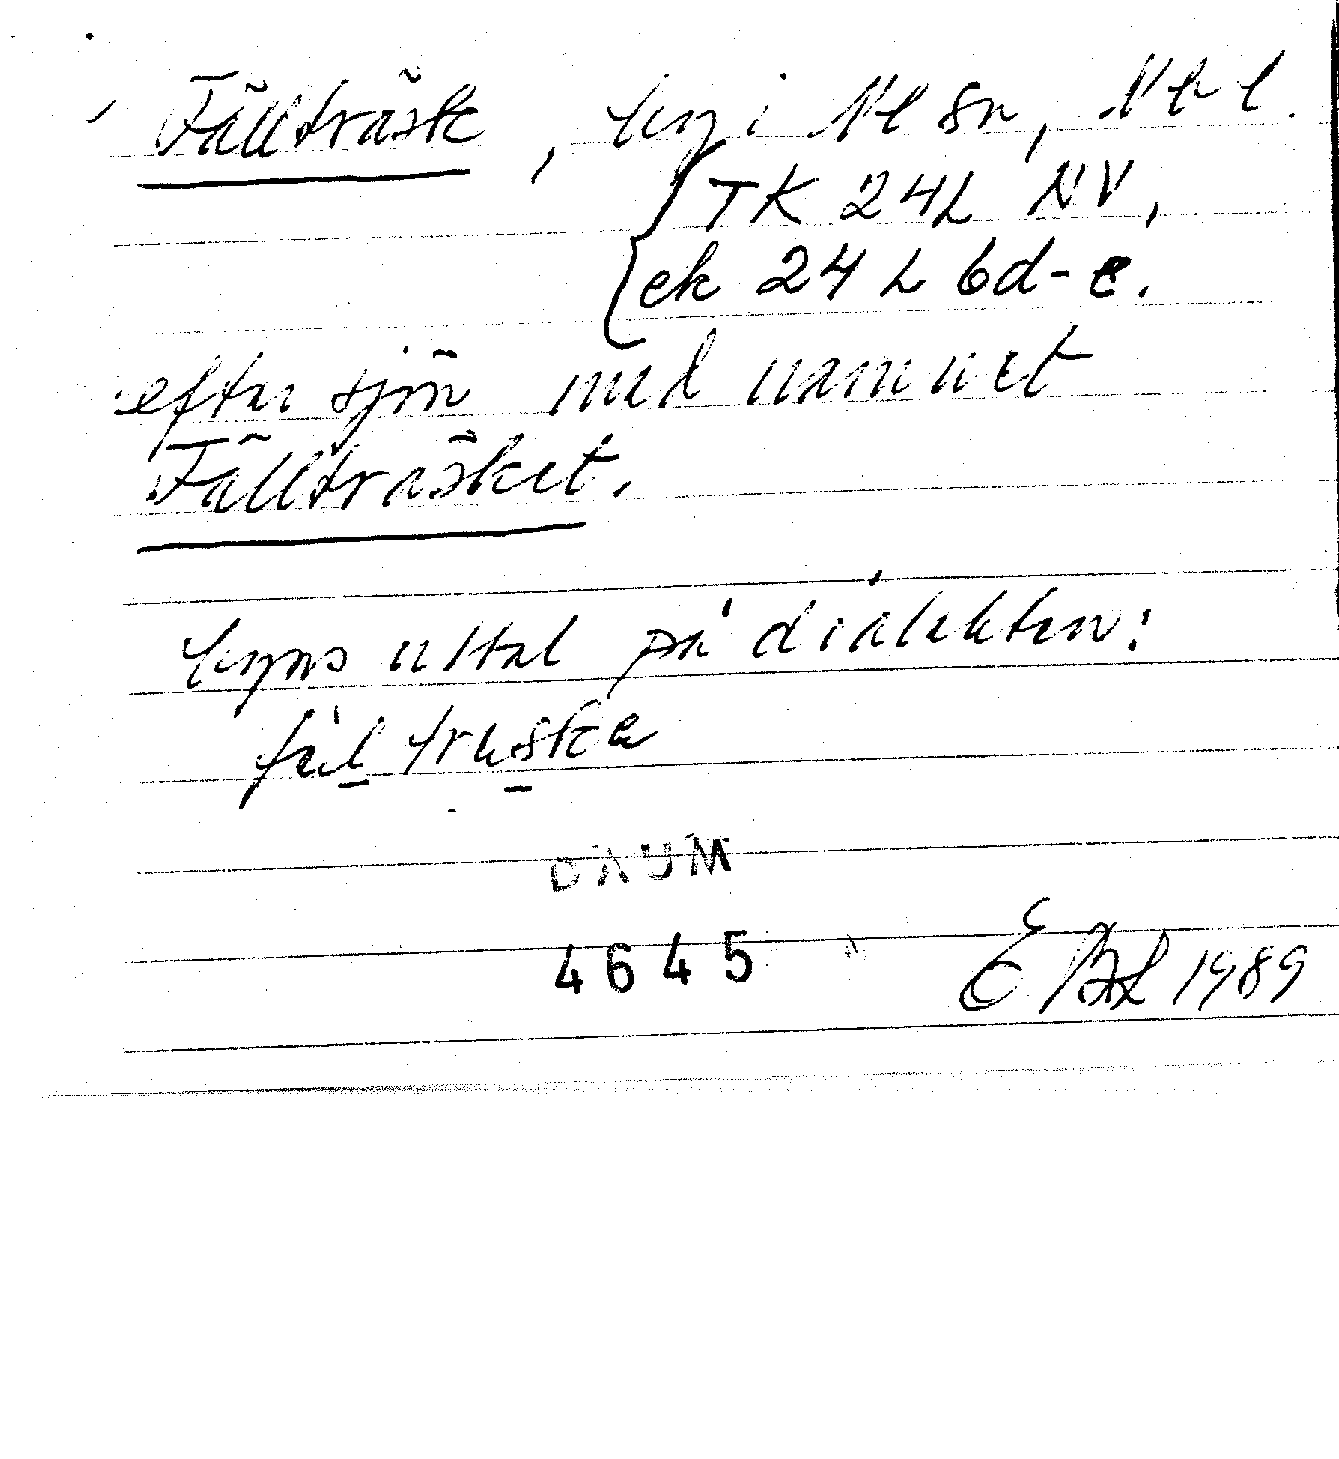 Fällträsk, byn i Nl sn, Nbl.
TK 24L NV,
ek 24 L 6d-e.
efter sjön med namnet
Fällträsket.
byns uttal på dialekten:
DAUM
4645
1989